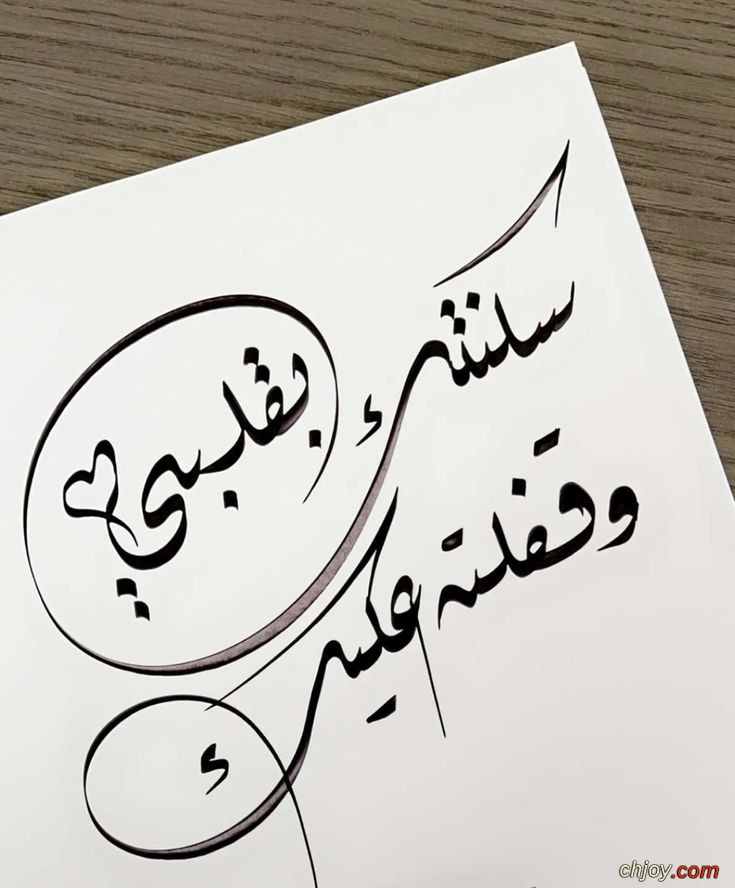 سكنتك بقلبي
وقفلته عليك
chjoy.com